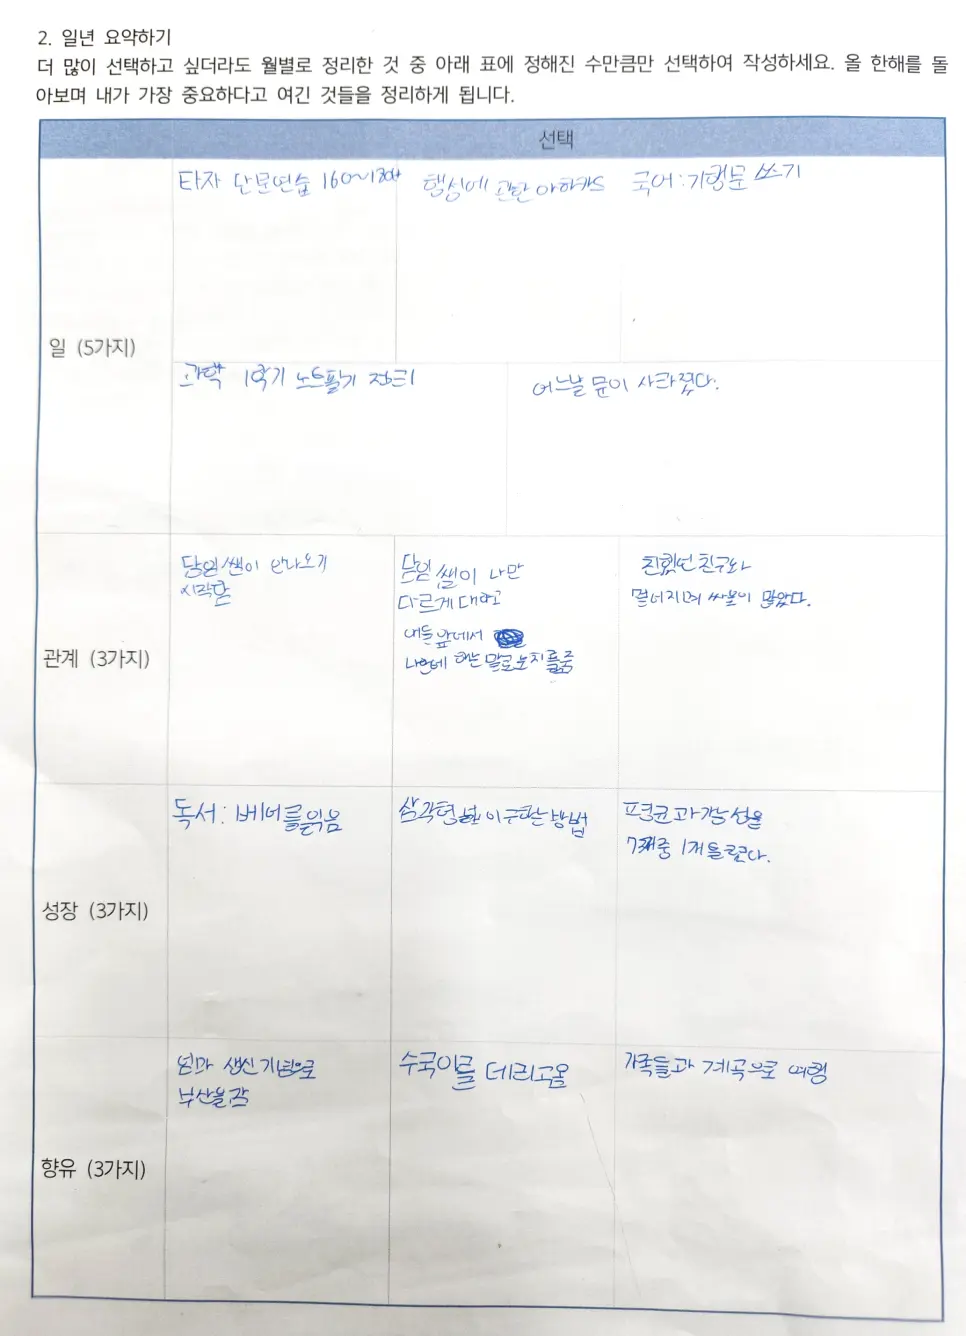 2. 일년 요약하기
더 많이 선택하고 싶더라도 월별로 정리한 것 중 아래 표에 정해진 수만큼만 선택하여 작성하세요. 올 한해를 돌
아보며 내가 가장 중요하다고 여긴 것들을 정리하게 됩니다.
선택
일 (5가지)
타자 단문연습 160~180타
행성에 관한 야하카드
국어:기행문 쓰기
과학 1학기 노트필기 정리
어느날 문이 사라졌다.
관계 (3가지)
담임쌤이 안나오기
시작함
담임 쌤이 나만
다르게 대하고
애들 앞에서
나한테 하는 말로 눈치를 줌
친했던 친구와
멀어지며 싸움이 많았다.
성장 (3가지)
독서: 베니를 읽음
삼각형 넓이 구하는 방법
평균과 가능성을
7개중 1개 틀렸다.
향유 (3가지)
엄마 생신 기념으로
부산을 감
수국이를 데리고 옴
가족들과 계곡으로 여행